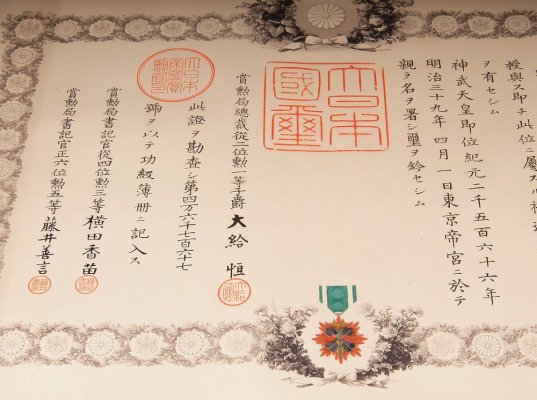 授與ス即チ此位ニ屬スル
ヲ有セシム
神武天皇即位紀元二千五百六十六年
明治三十九年四月一日東京帝宮ニ於テ
親ラ名ヲ署シ璽ヲ鈐セシム
大日本國璽
賞勲局總裁從二位勲一等子爵大給恒
此證ヲ勘査シ第四万六千七百六十七
號ヲ以テ功級簿册ニ記入ス
賞勲局書記官從四位勲三等横田香苗
賞勲局書記官正六位勲五等藤井善言